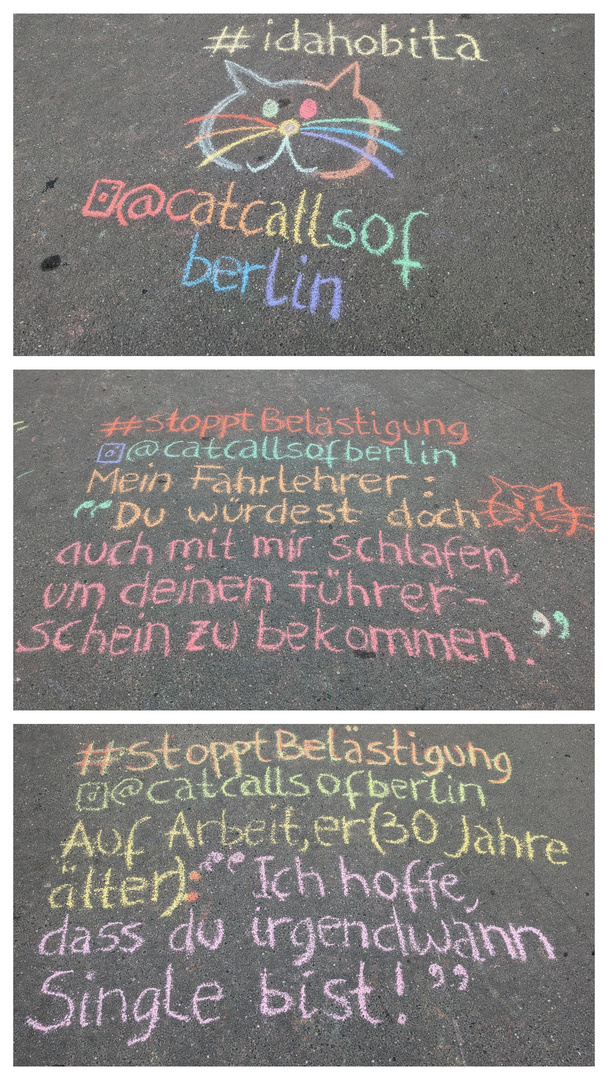 #idahobita
@catcallsof
berlin
#stopptBelästigung
@catcallsofberlin
Mein Fahrlehrer:
"Du würdest doch
auch mit mir schlafen,
um deinen Führer-
schein zu bekommen."
#stopptBelästigung
@catcallsofberlin
Auf Arbeit, er (30 Jahre
älter): "Ich hoffe,
dass du irgendwann
Single bist!"